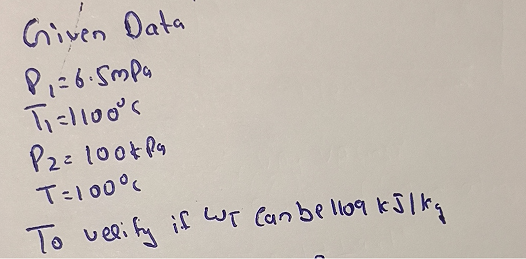 Given Data
P₁=6.5mPa
T₁=1100°c
P₂= 100kPa
T=100°c
To verify if WT Can be 1109 kJ/kg